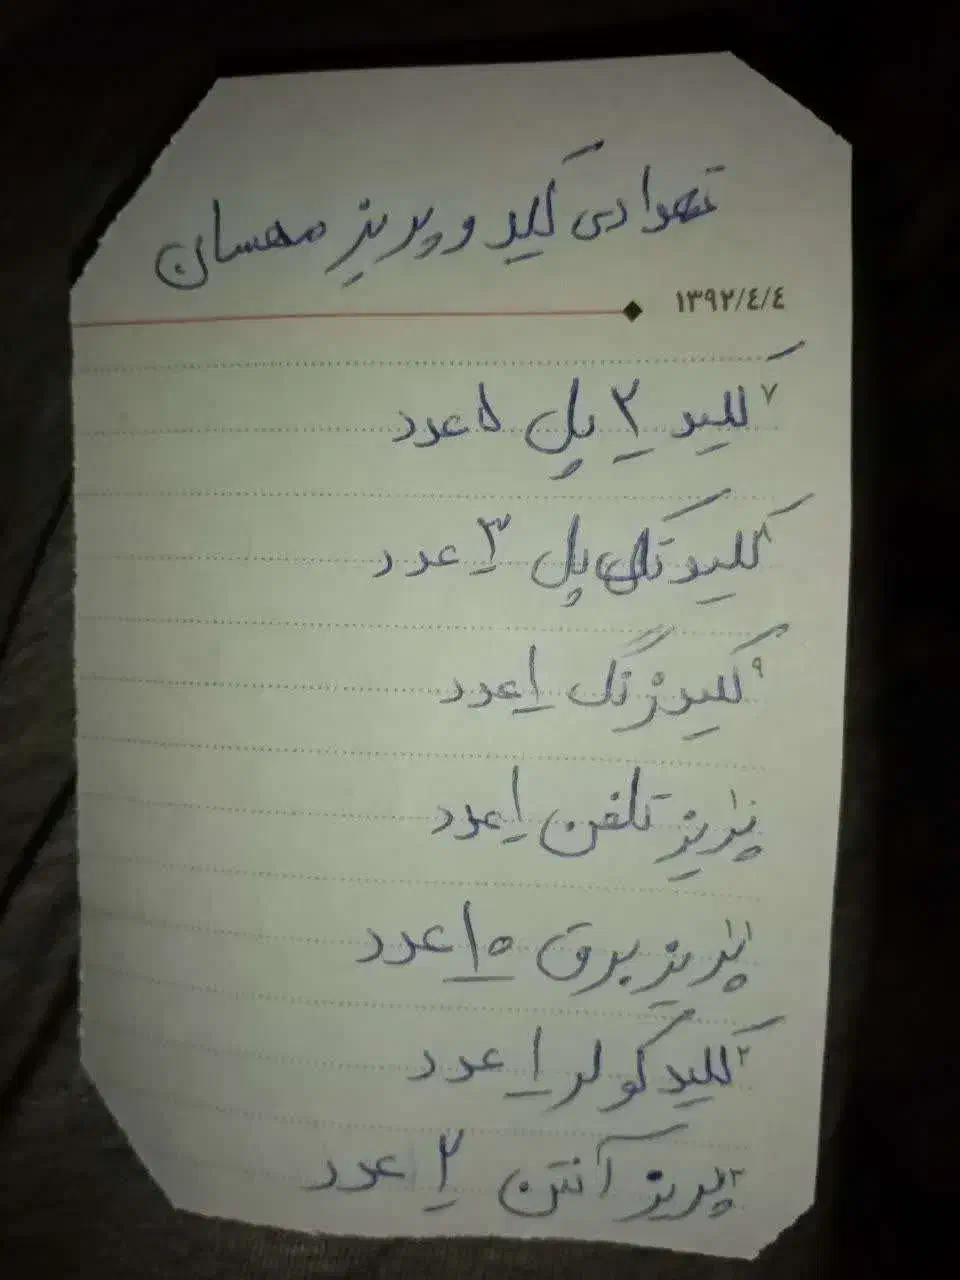 تعدادی کلید و پریز مهسان
۱۳۹۲/٤/٤
۷ کلید ۲ پل ۵ عدد
۸ کلید تک پل ۳ عدد
۹ کلید زنگ ۱ عدد
پریز تلفن ۱ عدد
پریز برق ۱۵ عدد
۲ کلید کولر ۱ عدد
۳ پریز آنتن ۲ عدد